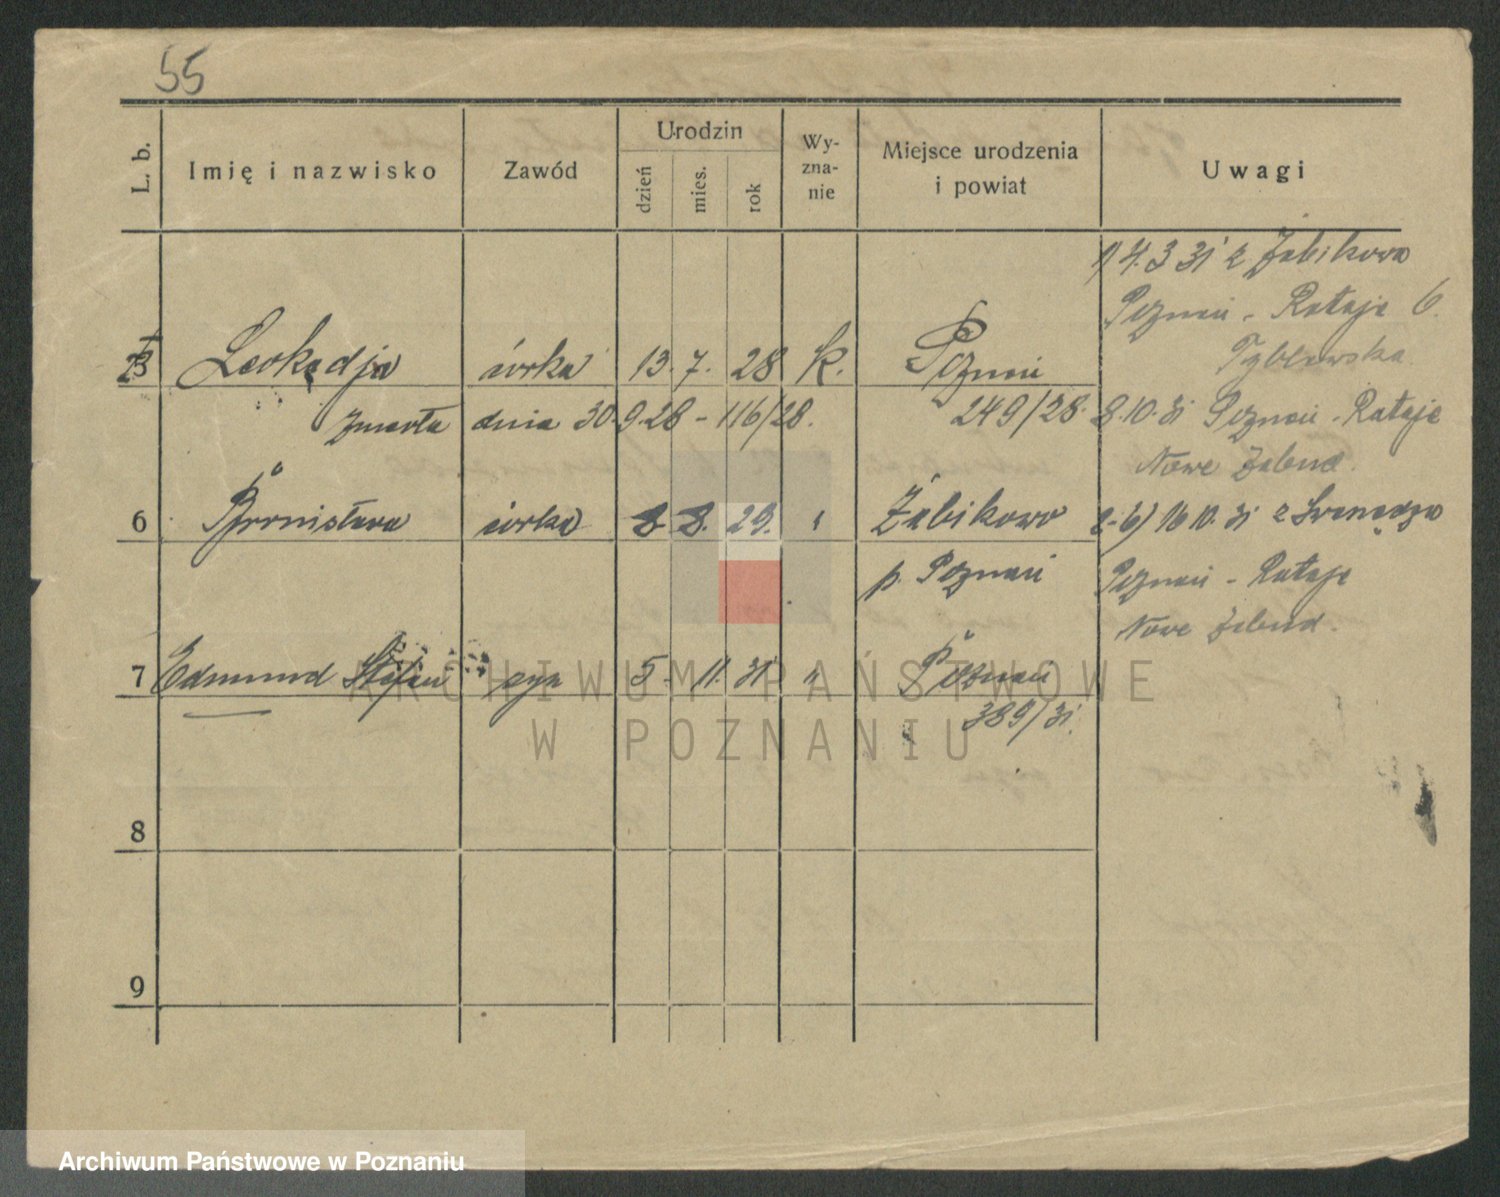 55
L. b.
Imię i nazwisko
Zawód
Urodzin
dzień
mies.
rok
Wy-
zna-
nie
Miejsce urodzenia
i powiat
Uwagi
4.3 31 z Żabikowa
Poznań - Rataje 6.
Leokadja córka 13. 7. 28 K. Poznań
zmarła dnia 30.9.28 - 116/28. 249/28.
8.10.31 Poznań - Rataje
Nowe
6 Bronisława córka 8. 29. Żabikowo
p. Poznań
16 10. 31 z
Poznań - Rataje
Nowe
7 Edmund Stefan syn 5. 11. 31 " Poznań
389/31.
8
9
ARCHIWUM PAŃSTWOWE
W POZNANIU
Archiwum Państwowe w Poznaniu